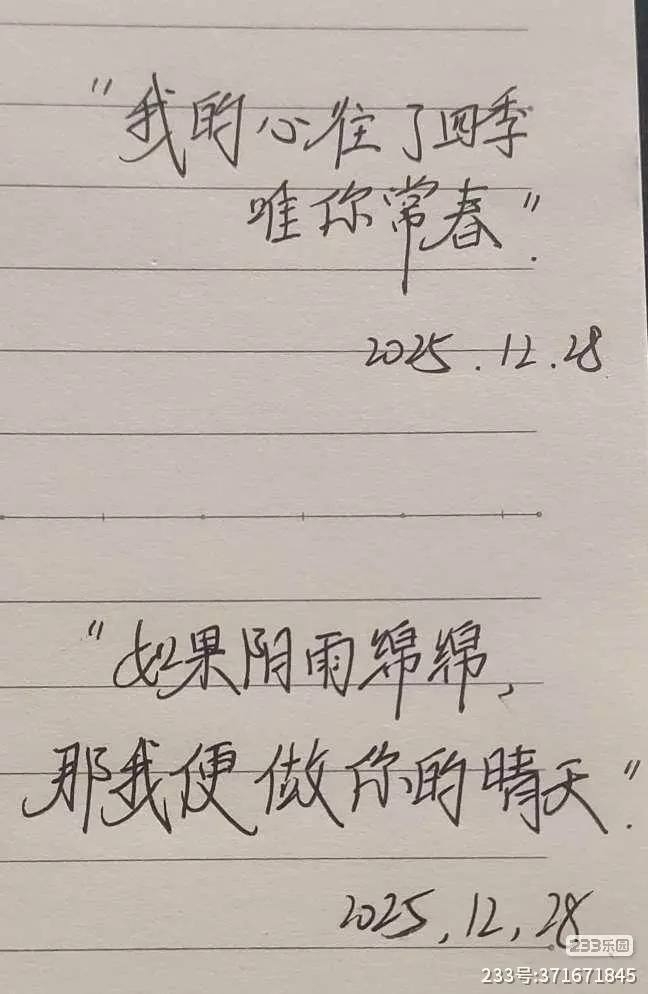 “我的心住了四季
唯你常春”.
2025.12.28
“如果阴雨绵绵,
那我便做你的晴天”.
2025,12,28
233乐园
233号:371671845